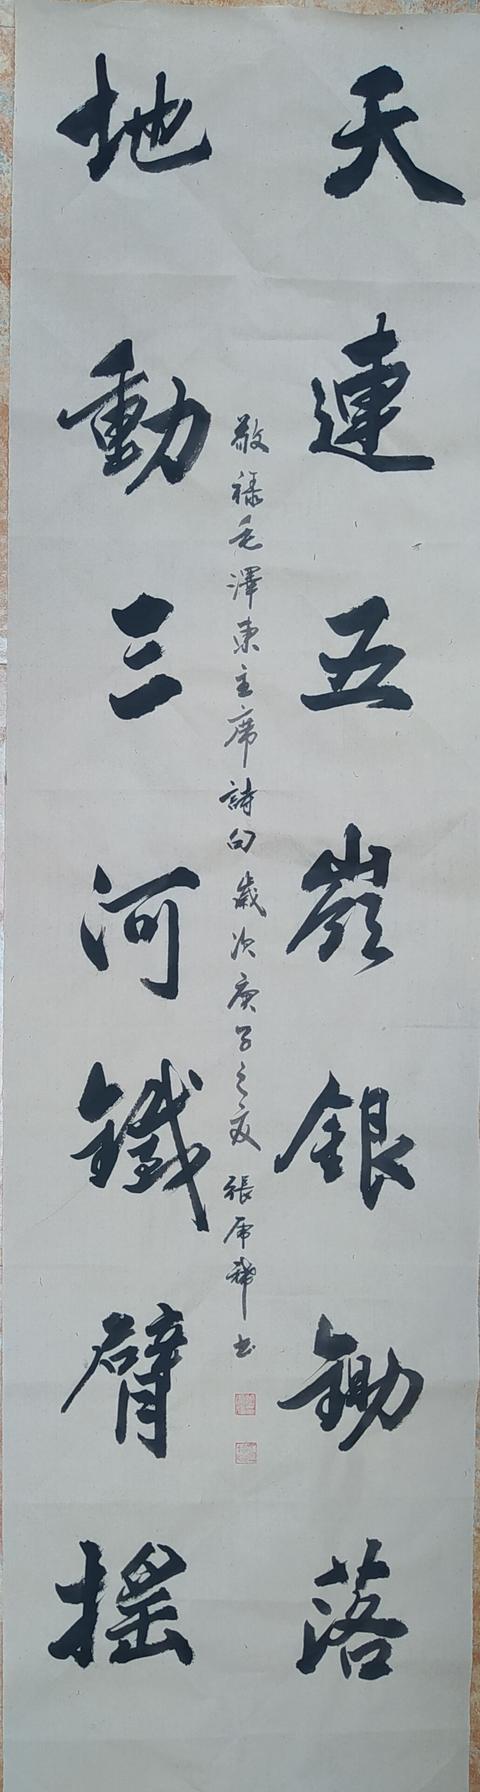 天連五嶺銀鋤落
敬祿毛澤東主席詩句歲次庚子之夏張席華書
地動三河鐵臂搖